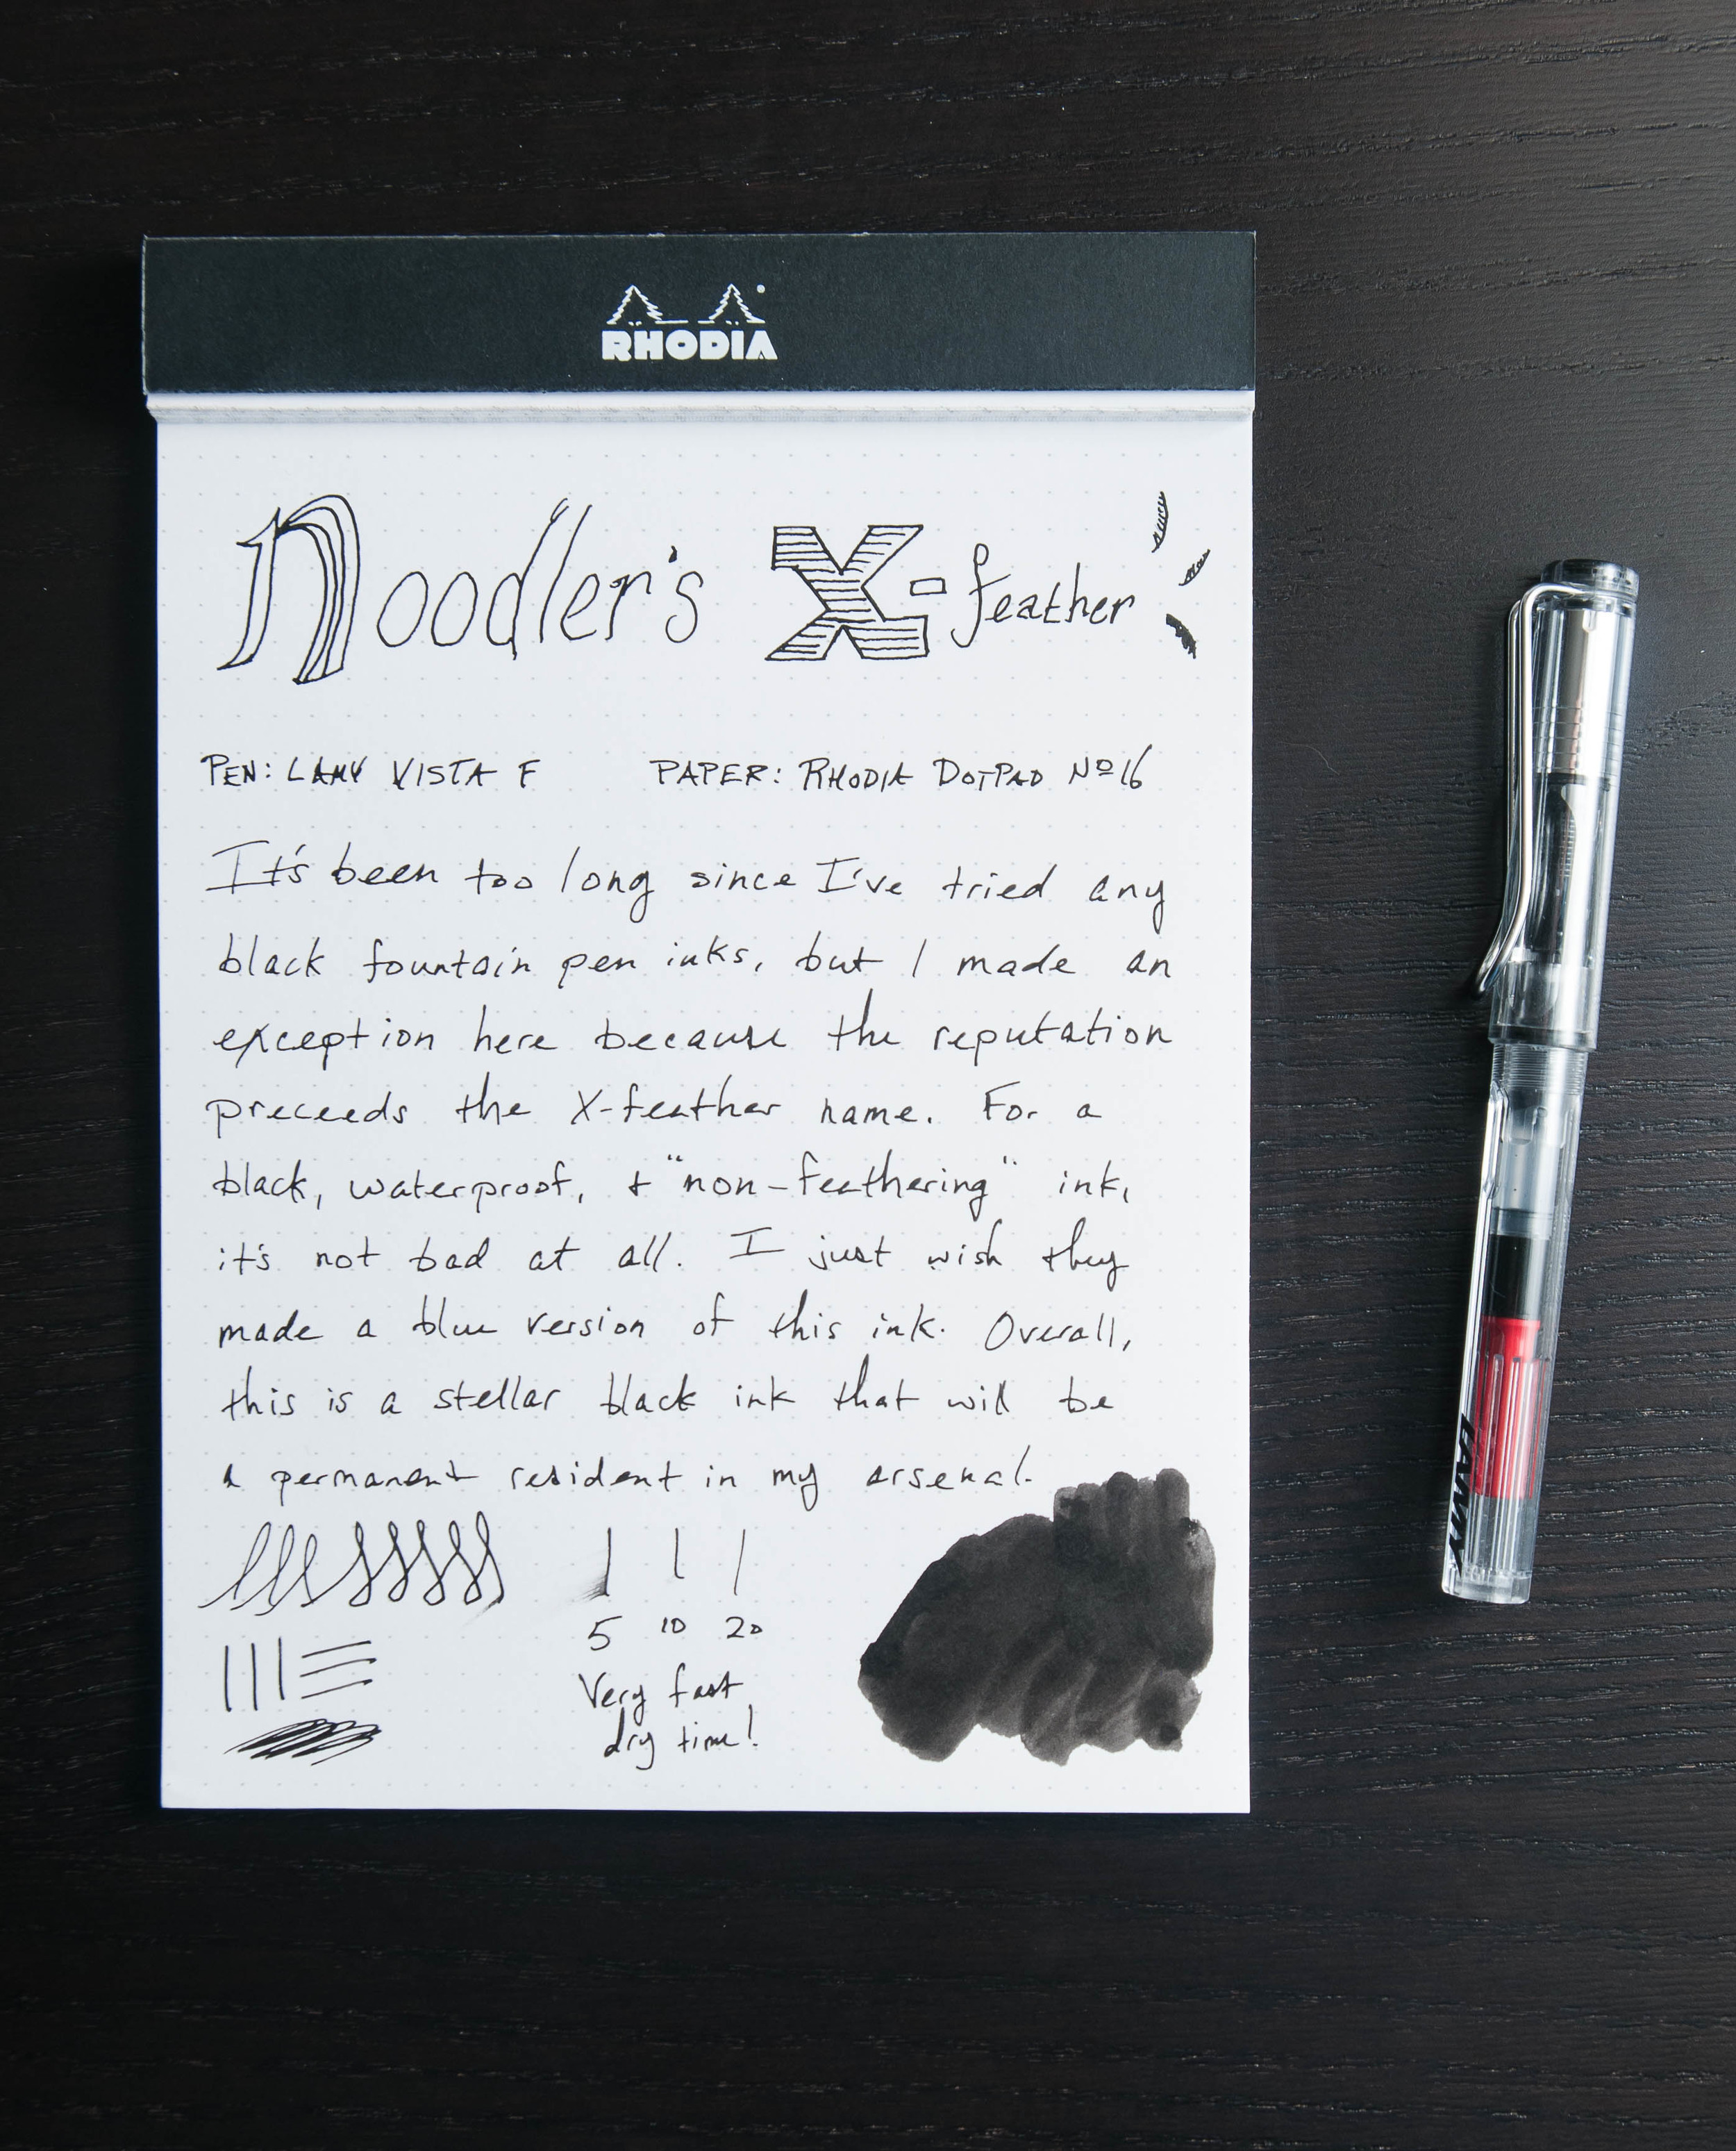 RHODIA
Noodler's X-feather
PEN: LAMY VISTA F PAPER: RHODIA DOTPAD Nº16
It's been too long since I've tried any
black fountain pen inks, but I made an
exception here because the reputation
preceeds the X-feather name. For a
black, waterproof, + "non-feathering" ink,
it's not bad at all. I just wish they
made a blue version of this ink. Overall,
this is a stellar black ink that will be
a permanent resident in my arsenal.
5 10 20
Very fast
dry time!
LAMY